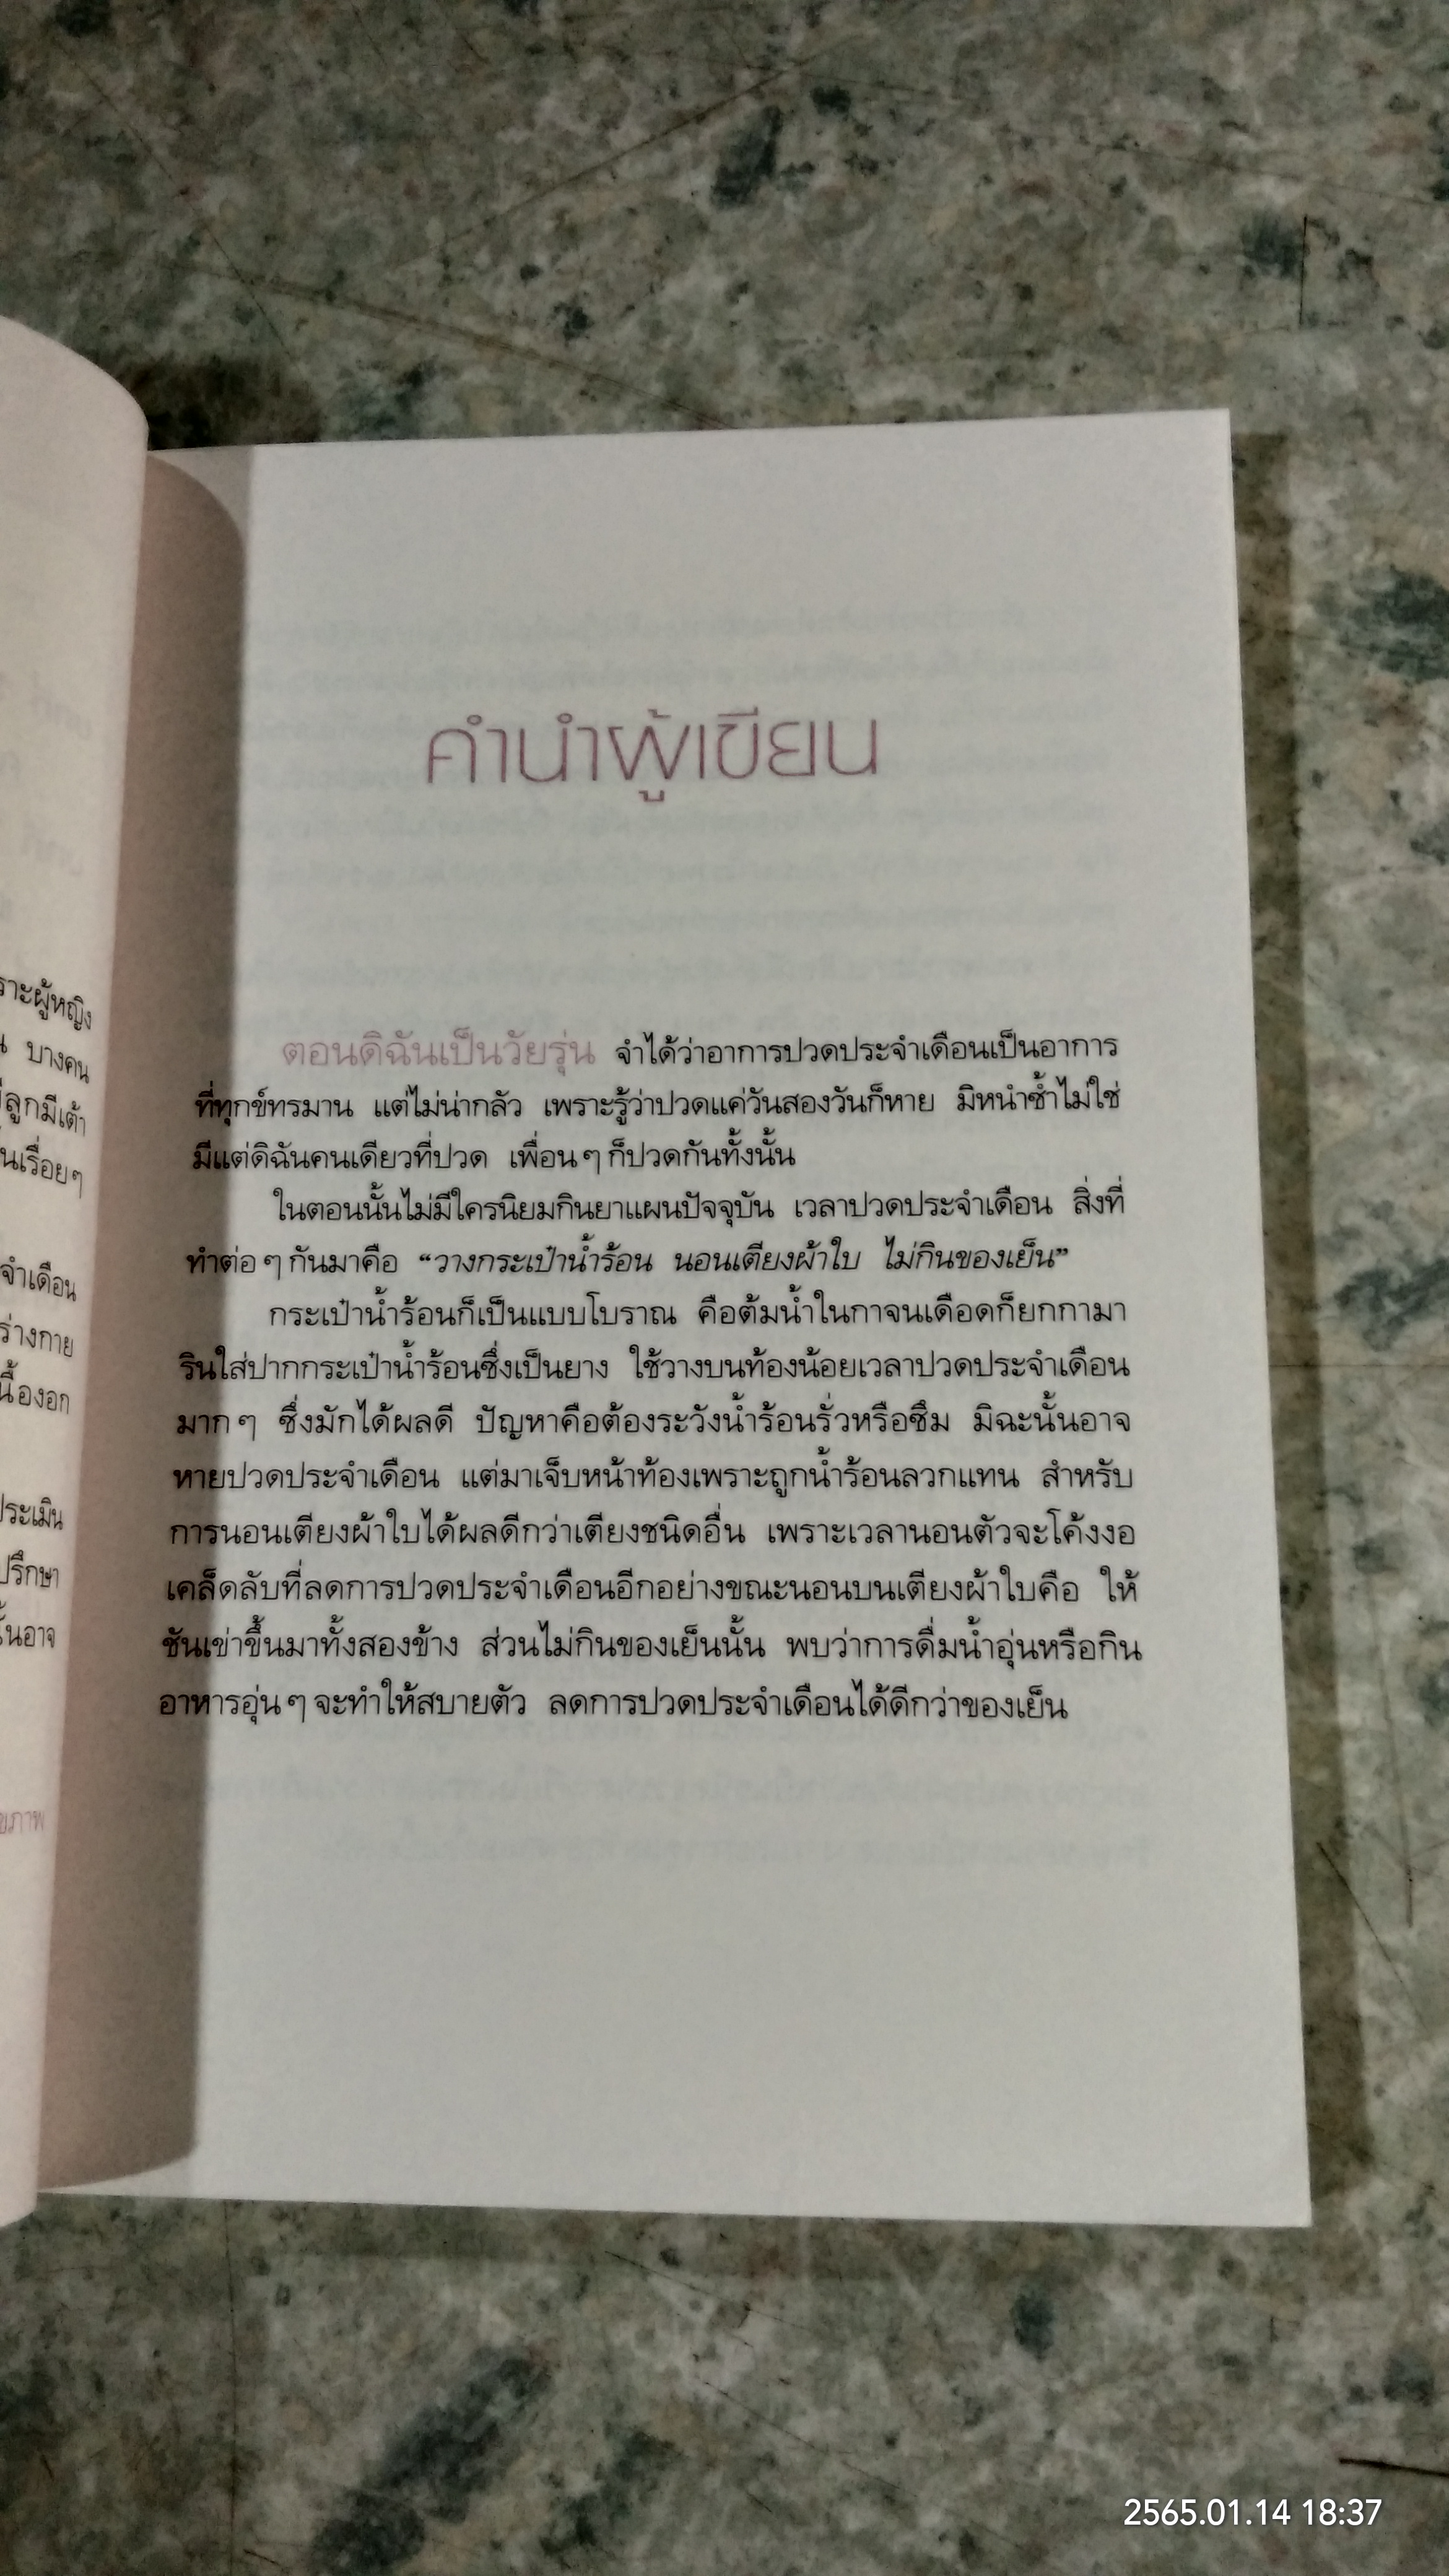 ราะผู้หญิง
บางคน
ลูกมีเต้า
นเรื่อยๆ
จำเดือน
ร่างกาย
นื้องอก
ประเมิน
ปรึกษา
นอาจ
ขภาพ
คำนำผู้เขียน
ตอนดิฉันเป็นวัยรุ่น จำได้ว่าอาการปวดประจำเดือนเป็นอาการ
ที่ทุกข์ทรมาน แต่ไม่น่ากลัว เพราะรู้ว่าปวดแค่วันสองวันก็หาย มิหนำซ้ำไม่ใช่
มีแต่ดิฉันคนเดียวที่ปวด เพื่อน ๆ ก็ปวดกันทั้งนั้น
ในตอนนั้นไม่มีใครนิยมกินยาแผนปัจจุบัน เวลาปวดประจำเดือน สิ่งที่
ทำต่อ ๆ กันมาคือ “วางกระเป๋าน้ำร้อน นอนเตียงผ้าใบ ไม่กินของเย็น”
กระเป๋าน้ำร้อนก็เป็นแบบโบราณ คือต้มน้ำในกาจนเดือดก็ยกกามา
รินใส่ปากกระเป๋าน้ำร้อนซึ่งเป็นยาง ใช้วางบนท้องน้อยเวลาปวดประจำเดือน
มาก ๆ ซึ่งมักได้ผลดี ปัญหาคือต้องระวังน้ำร้อนรั่วหรือซึม มิฉะนั้นอาจ
หายปวดประจำเดือน แต่มาเจ็บหน้าท้องเพราะถูกน้ำร้อนลวกแทน สำหรับ
การนอนเตียงผ้าใบได้ผลดีกว่าเตียงชนิดอื่น เพราะเวลานอนตัวจะโค้งงอ
เคล็ดลับที่ลดการปวดประจำเดือนอีกอย่างขณะนอนบนเตียงผ้าใบคือ ให้
ชันเข่าขึ้นมาทั้งสองข้าง ส่วนไม่กินของเย็นนั้น พบว่าการดื่มน้ำอุ่นหรือกิน
อาหารอุ่น ๆ จะทำให้สบายตัว ลดการปวดประจำเดือนได้ดีกว่าของเย็น
2565.01.14 18:37